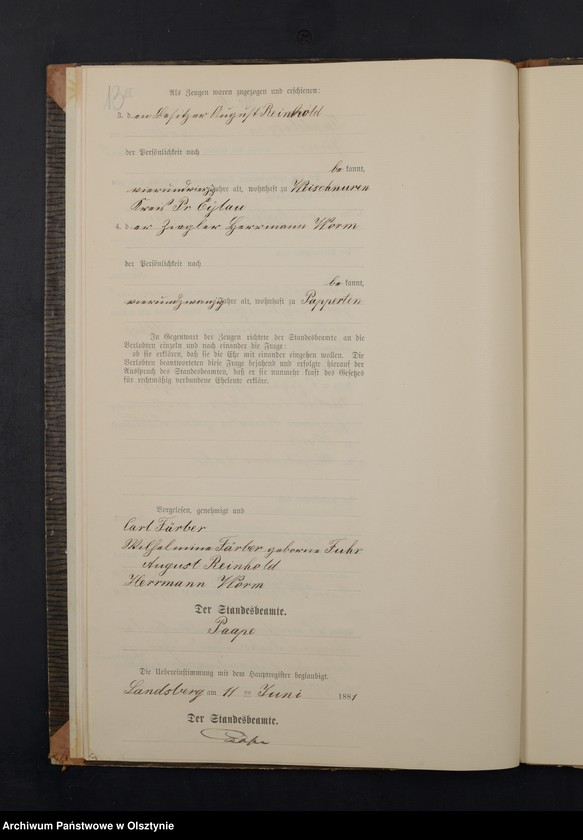 13
Als Zeugen waren zugezogen und erschienen:
3. den Besitzer August Reinhold
der Persönlichkeit nach
be kannt,
Jahre alt, wohnhaft zu Wischnuren
Kreis Pr Eylau
4. der Ziegler Herrmann Worm
der Persönlichkeit nach
be kannt,
vierundzwanzig Jahre alt, wohnhaft zu Papperten
In Gegenwart der Zeugen richtete der Standesbeamte an die
Verlobten einzeln und nach einander die Frage:
ob sie erklären, daß sie die Ehe mit einander eingehen wollen. Die
Verlobten beantworteten diese Frage bejahend und erfolgte hierauf der
Ausspruch des Standesbeamten, daß er sie nunmehr kraft des Gesetzes
für rechtmäßig verbundene Eheleute erkläre.
Vorgelesen, genehmigt und
Carl Färber
Wilhelmine Färber geborne Fuhr
August Reinhold
Herrmann Worm
Der Standesbeamte.
Paape
Die Uebereinstimmung mit dem Hauptregister beglaubigt.
Landsberg am 11 ten Juni 1881
Der Standesbeamte.
Paape
Archiwum Państwowe w Olsztynie